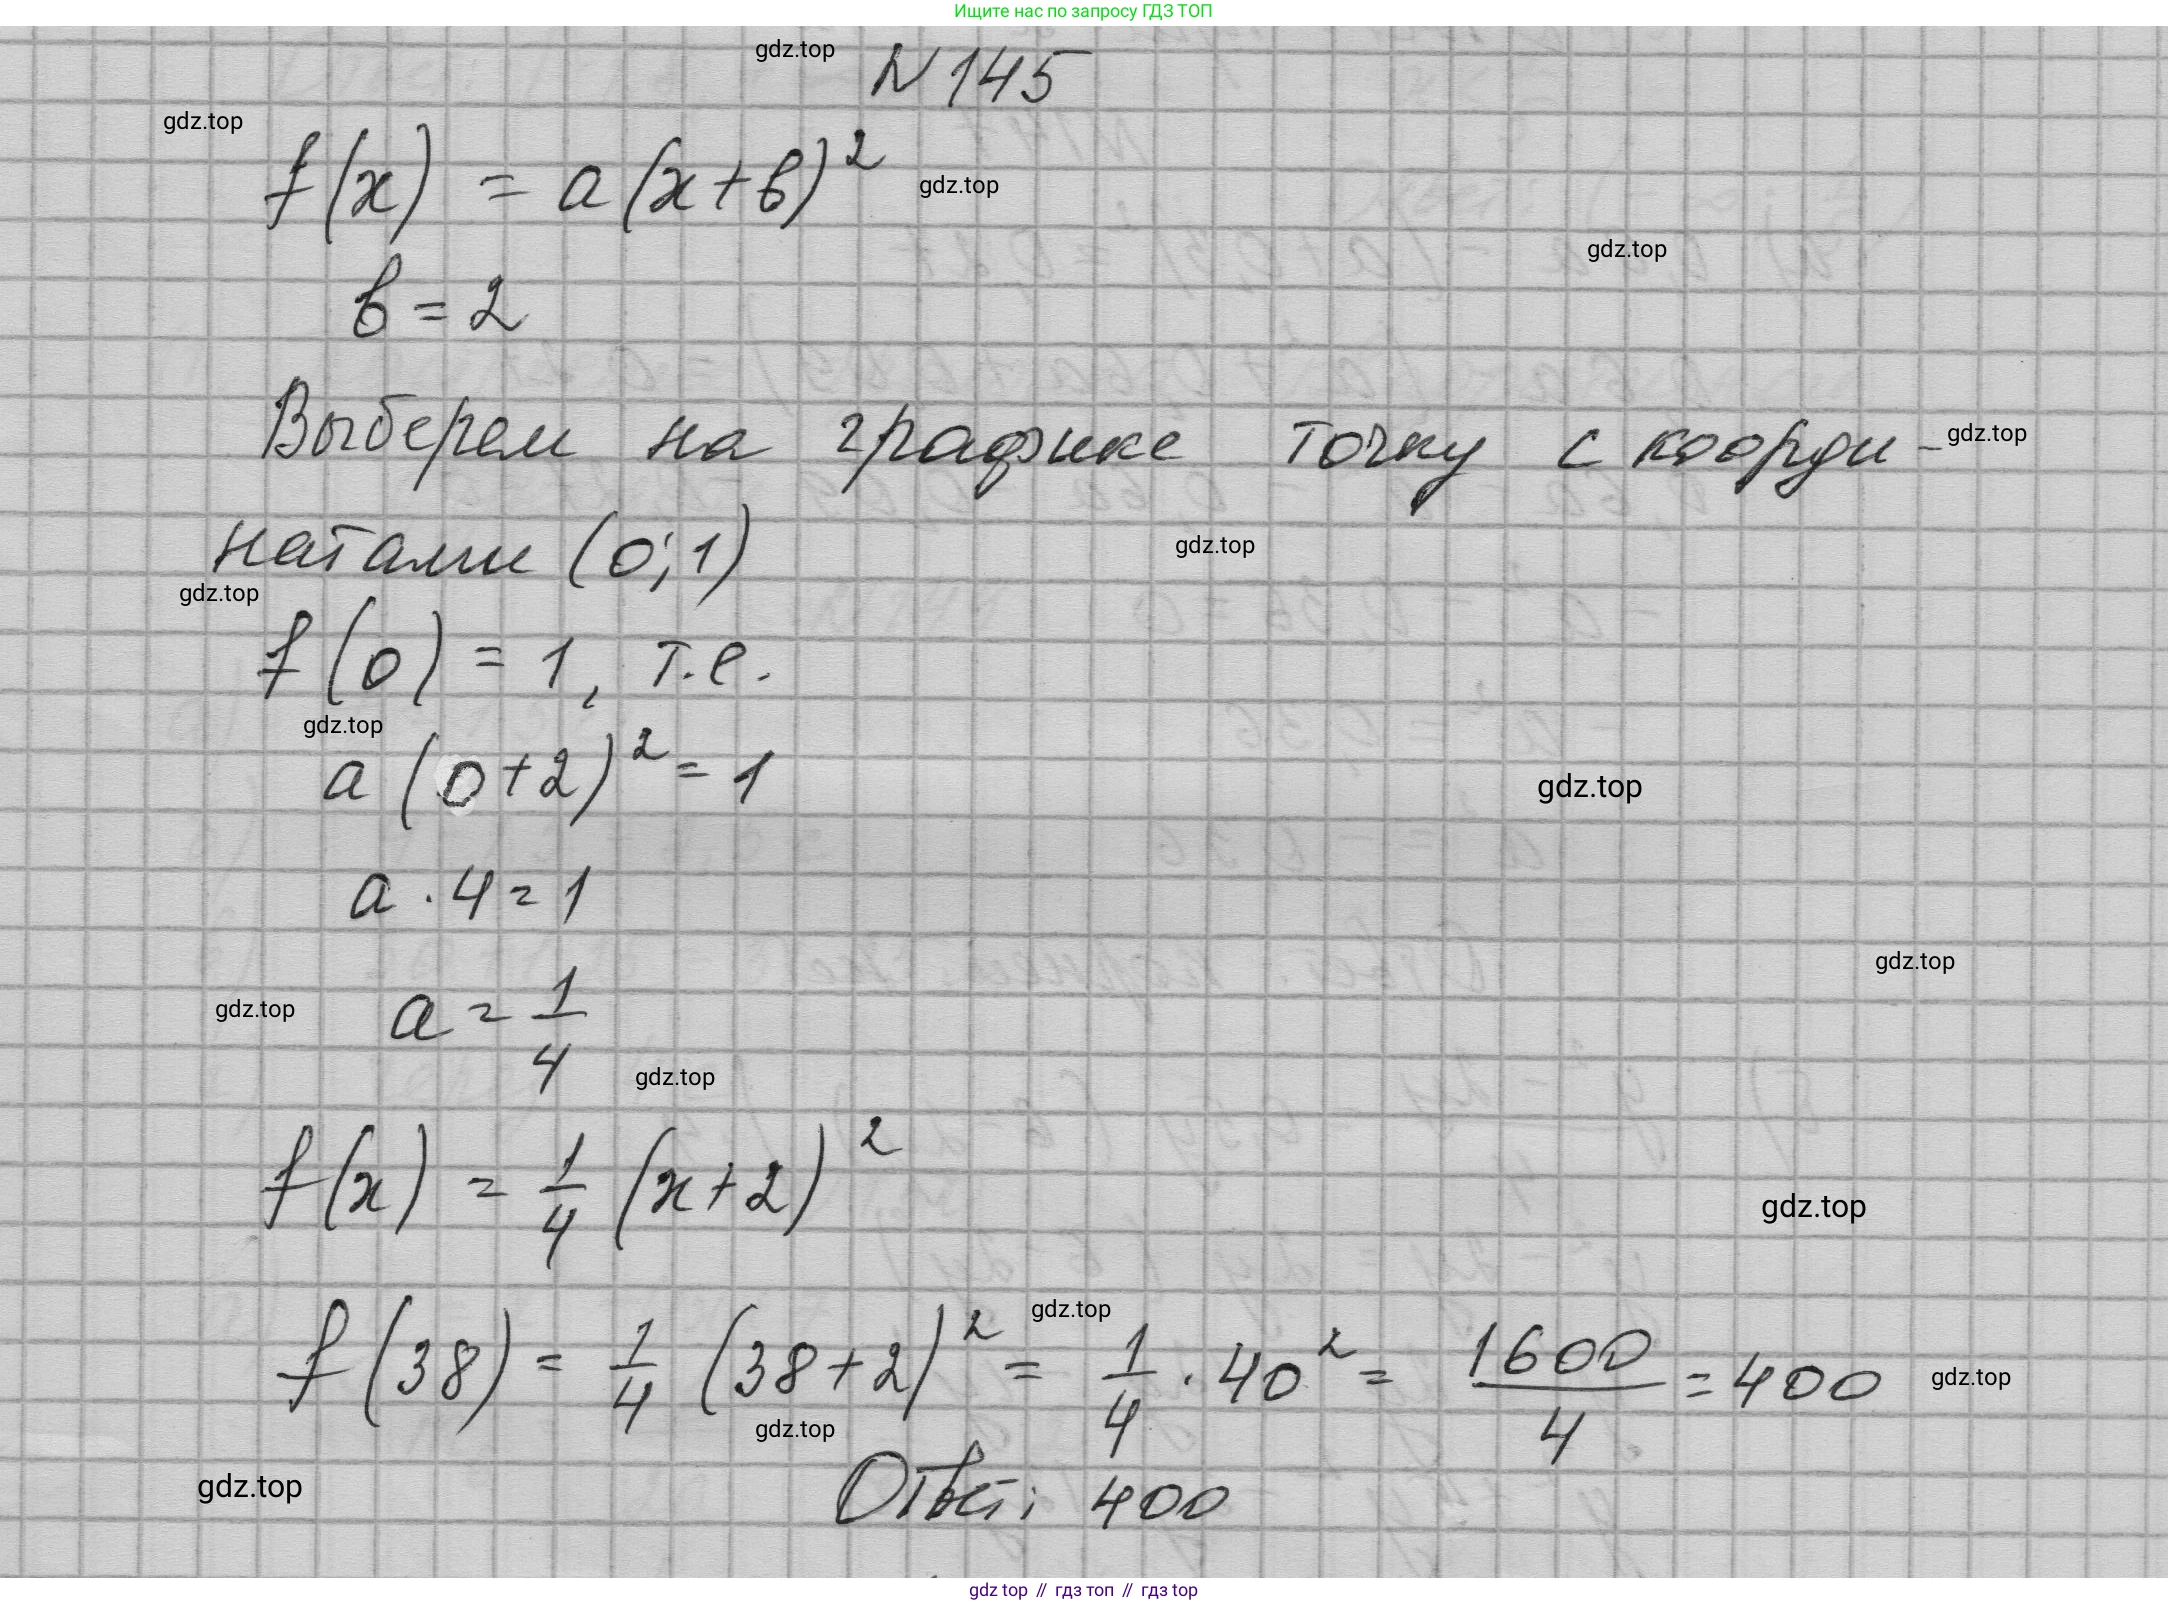 Ищите нас по запросу ГДЗ ТОП
gdz.top
N 145
gdz.top
f(x) = a(x+b)²
gdz.top
gdz.top
b = 2
Выберем на графике точку с коорди-
gdz.top
натами (0; 1)
gdz.top
gdz.top
f(0) = 1, т.е.
gdz.top
a(0+2)² = 1
gdz.top
a · 4 = 1
gdz.top
a = 1/4
gdz.top
gdz.top
f(x) = 1/4 (x+2)²
gdz.top
gdz.top
f(38) = 1/4 (38+2)² = 1/4 · 40² = 1600/4 = 400
gdz.top
gdz.top
gdz.top
Ответ: 400
gdz top // гдз топ // гдз top